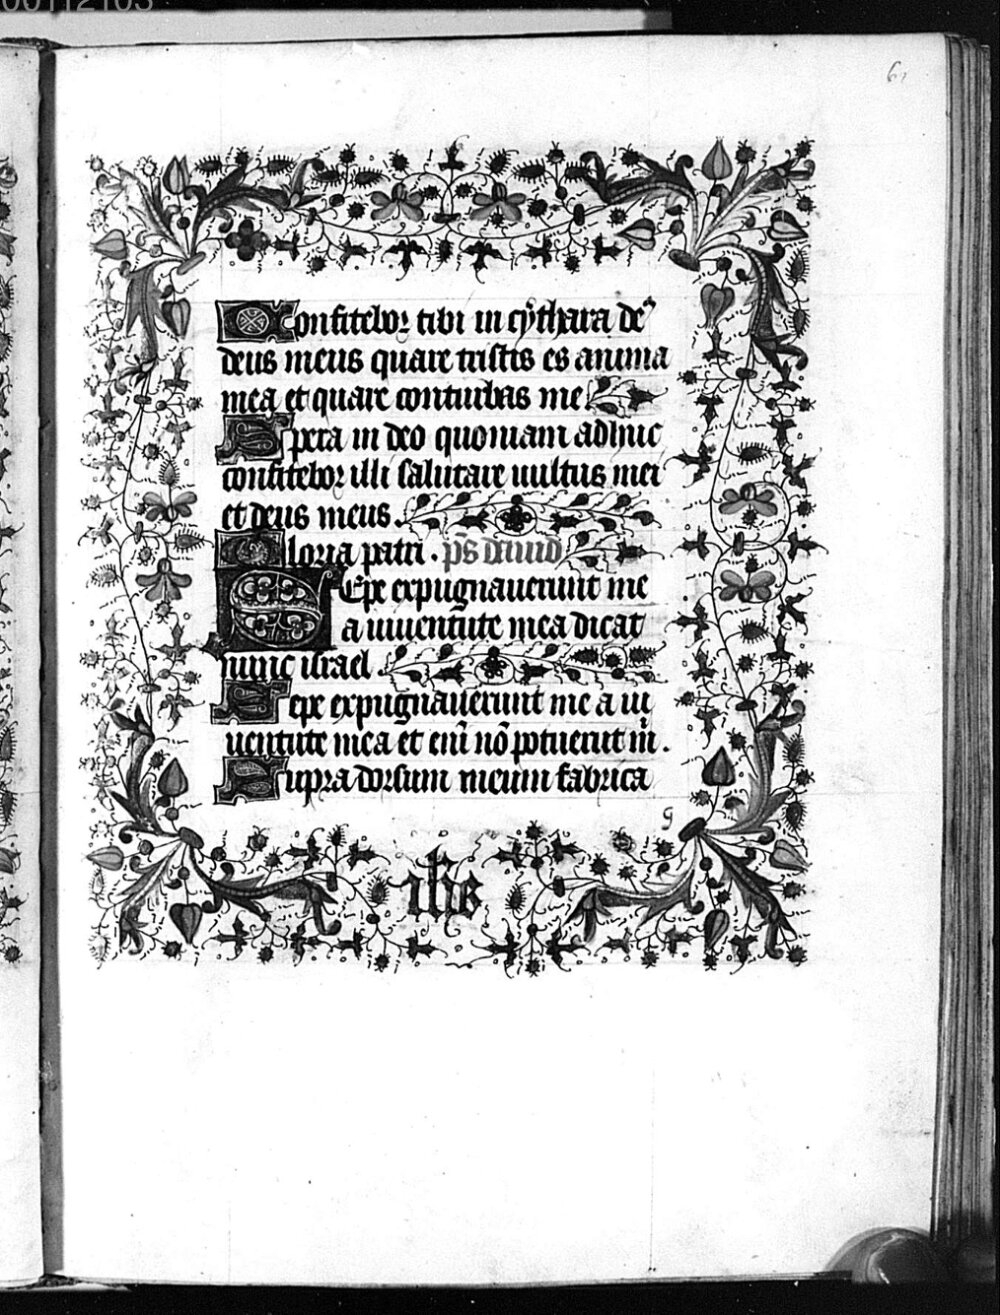 00112103
61
Confitebor tibi in cythara de⁹
deus meus quare tristis es anima
mea et quare conturbas me.
Spera in deo quoniam adhuc
confitebor illi salutare uultus mei
et deus meus.
Gloria patri. p̄s dauid
SEpe expugnauerunt me
a iuuentute mea dicat
nunc israel.
Sepe expugnauerunt me a iu
uentute mea et eni̅ no̅ potuerut m̅.
Supra dorsum meum fabrica
g
ihs